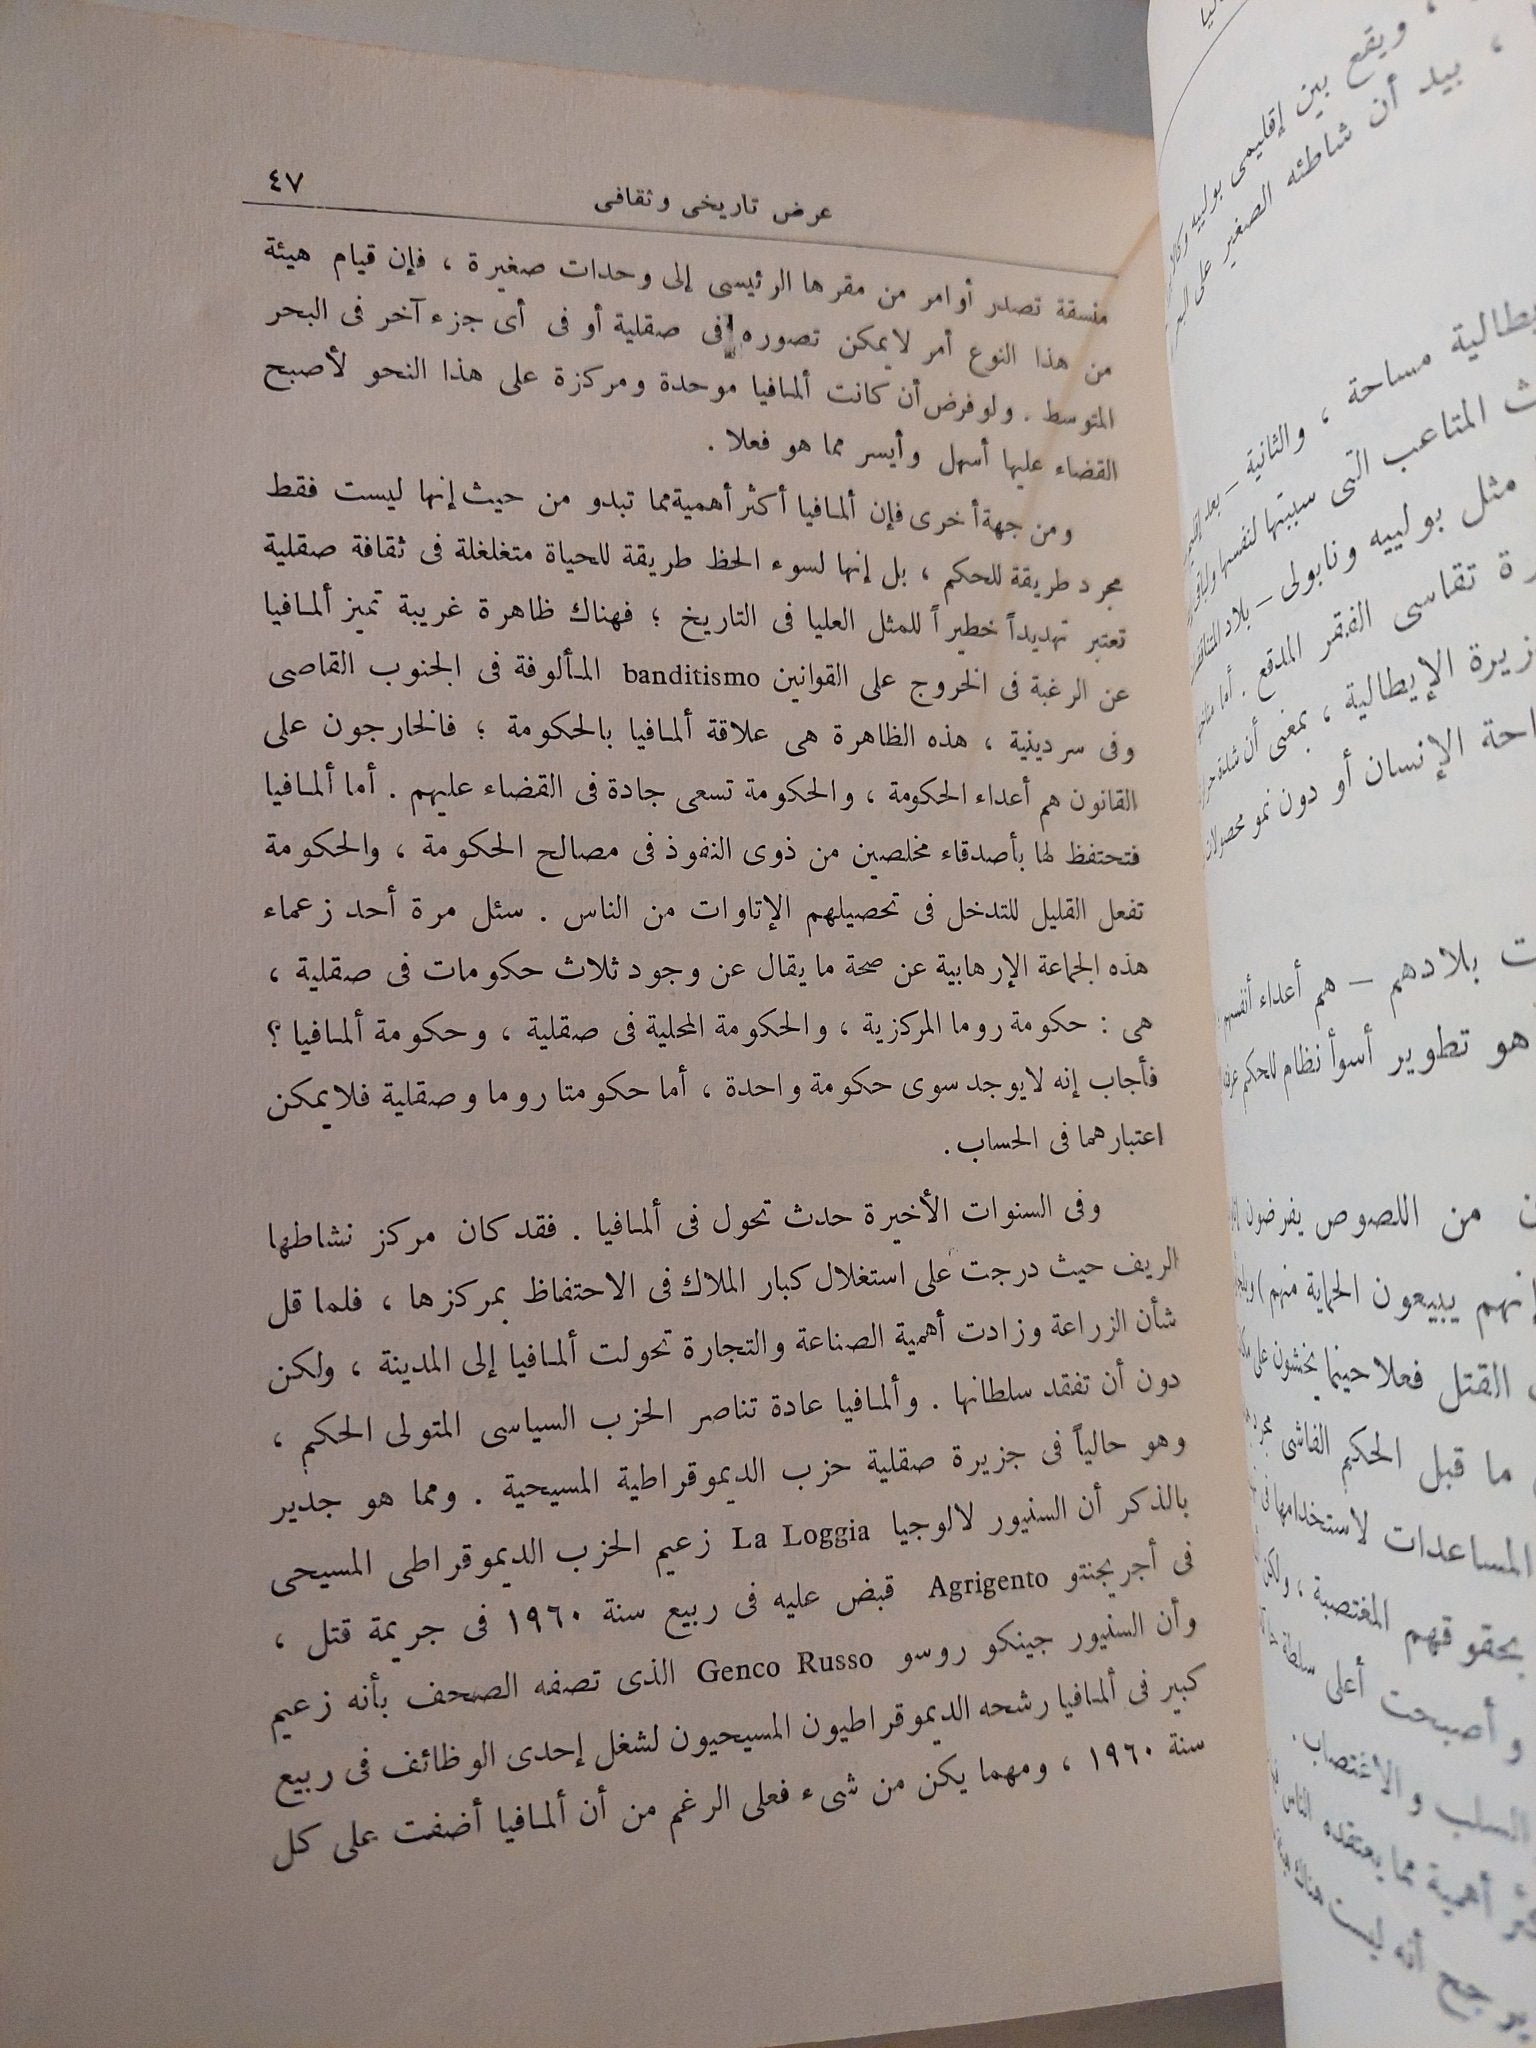 عرض تاريخى وثقافى
٤٧
منسقة تصدر أوامر من مقرها الرئيسى إلى وحدات صغيرة ، فإن قيام هيئة
من هذا النوع أمر لايمكن تصوره فى صقلية أو فى أى جزء آخر فى البحر
المتوسط . ولوفرض أن كانت ألمافيا موحدة ومركزة على هذا النحو لأصبح
القضاء عليها أسهل وأيسر مما هو فعلا .
ومن جهة أخرى فإن ألمافيا أكثر أهمية مما تبدو من حيث إنها ليست فقط
مجرد طريقة للحكم ، بل إنها لسوء الحظ طريقة للحياة متغلغلة فى ثقافة صقلية
تعتبر تهديداً خطيراً للمثل العليا فى التاريخ ؛ فهناك ظاهرة غريبة تميز ألمافيا
عن الرغبة فى الخروج على القوانين banditismo المألوفة فى الجنوب القاصى
وفى سردينية ، هذه الظاهرة هى علاقة ألمافيا بالحكومة ؛ فالخارجون على
القانون هم أعداء الحكومة ، والحكومة تسعى جادة فى القضاء عليهم . أما ألمافيا
فتحتفظ لها بأصدقاء مخلصين من ذوى النفوذ فى مصالح الحكومة ، والحكومة
تفعل القليل للتدخل فى تحصيلهم الإتاوات من الناس . سئل مرة أحد زعماء
هذه الجماعة الإرهابية عن صحة ما يقال عن وجود ثلاث حكومات فى صقلية ،
هى : حكومة روما المركزية ، والحكومة المحلية فى صقلية ، وحكومة ألمافيا ؟
فأجاب إنه لايوجد سوى حكومة واحدة ، أما حكومتا روما وصقلية فلايمكن
اعتبارهما فى الحساب .
وفى السنوات الأخيرة حدث تحول فى ألمافيا . فقد كان مركز نشاطها
الريف حيث درجت على استغلال كبار الملاك فى الاحتفاظ بمركزها ، فلما قل
شأن الزراعة وزادت أهمية الصناعة والتجارة تحولت ألمافيا إلى المدينة ، ولكن
دون أن تفقد سلطانها . وألمافيا عادة تناصر الحزب السياسى المتولى الحكم ،
وهو حالياً فى جزيرة صقلية حزب الديموقراطية المسيحية . ومما هو جدير
بالذكر أن السنيور لالوجيا La Loggia زعيم الحزب الديموقراطى المسيحى
فى أجريجنتو Agrigento قبض عليه فى ربيع سنة ١٩٦٠ فى جريمة قتل ،
وأن السنيور جينكو روسو Genco Russo الذى تصفه الصحف بأنه زعيم
كبير فى ألمافيا رشحه الديموقراطيون المسيحيون لشغل إحدى الوظائف فى ربيع
سنة ١٩٦٠ ، ومهما يكن من شىء فعلى الرغم من أن ألمافيا أضفت على كل
، ويقع بين إقليمى بولييه
، بيد أن شاطئه الصغير على
مساحة ، والثانية – بعد
المتاعب التى سببتها لنفسها
مثل بولييه ونابولى – بلاد
تقاسى الفقر المدقع . أما
الإيطالية ، بمعنى أن شدة
الإنسان أو دون نمو محصولات
بلادهم – هم أعداء أنفسهم
هو تطوير أسوأ نظام للحكم
من اللصوص يفرضون
يبيعون الحماية منهم )
القتل فعلا حينما يخشون على
ما قبل الحكم الفاشى مجرد
المساعدات لاستخدامها فى
بحقوقهم المغتصبة ، ولكن
وأصبحت أعلى سلطة
السلب والاغتصاب .
أهمية مما يعتقده الناس